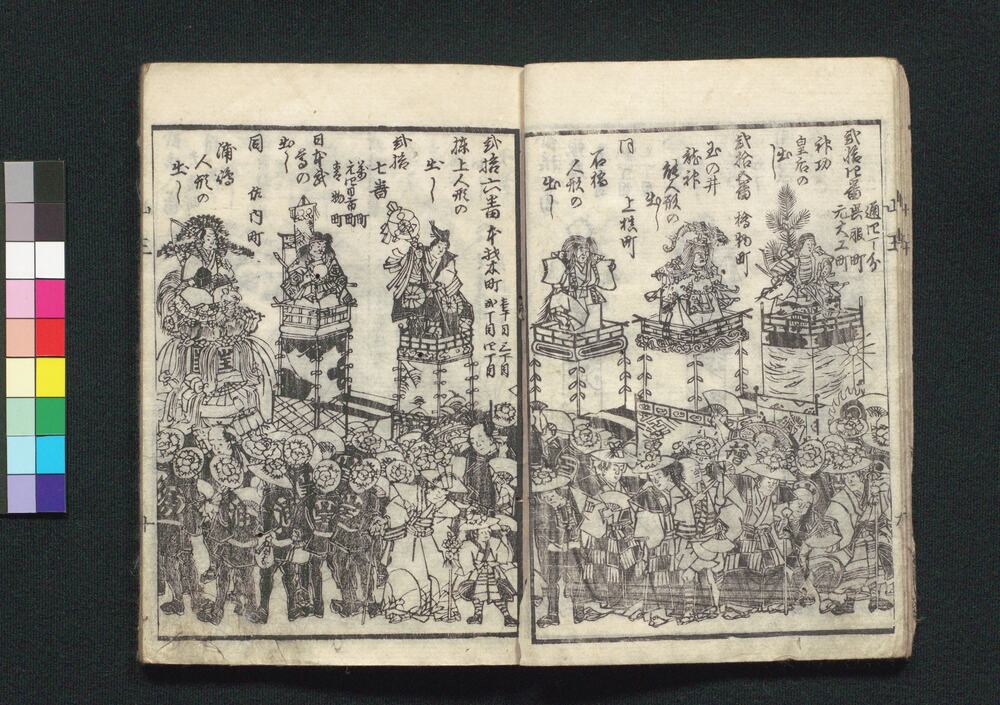 弐拾四番
通四丁分
呉服町
元大工町
神功
皇后の
出し
弐拾五番 檜物町
玉の井
龍神
能人形の
出し
同 上槙町
石橋
人形の
出し
弐拾六番 本材木町
壱丁目 二丁目
三丁目 四丁目
棟上人形の
出し
弐拾
七番
青物町
日本武
尊の
出し
同 佐内町
浦嶋
人形の
出し